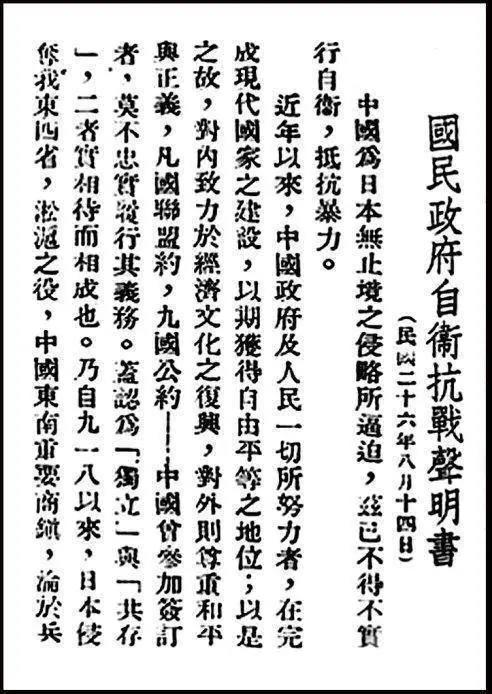 國民政府自衞抗戰聲明書
(民國二十六年八月十四日)
中國爲日本無止境之侵略所逼迫,茲已不得不實
行自衞,抵抗暴力。
近年以來,中國政府及人民一切所努力者,在完
成現代國家之建設,以期獲得自由平等之地位;以是
之故,對內致力於經濟文化之復興,對外則尊重和平
與正義,凡國聯盟約,九國公約——中國曾參加簽訂
者,莫不忠實履行其義務。蓋認爲「獨立」與「共存
」,二者實相待而相成也。乃自九一八以來,日本侵
奪我東四省,淞滬之役,中國東南重要商鎮,淪於兵